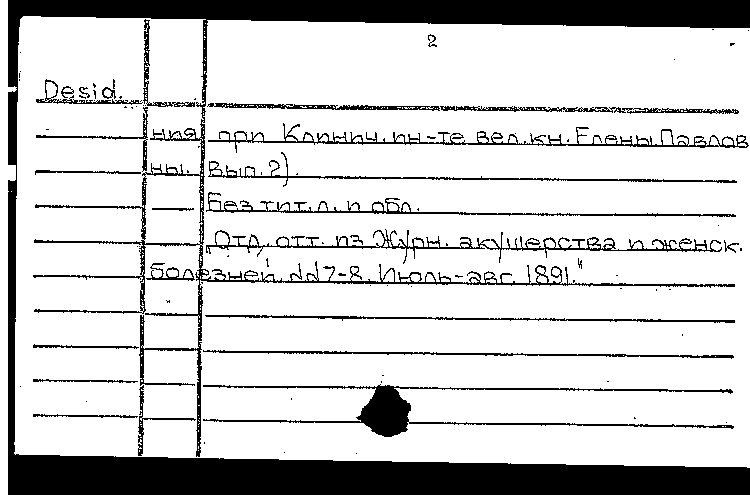 2
Desid.
ния при Клинич. ин-те вел.кн. Елены Павлов
ны. Вып. 2).
Без тит.л. и обл.
„Отд. отт. из Журн. акушерства и женск.
болезней. №№7-8. Июль-авг. 1891."